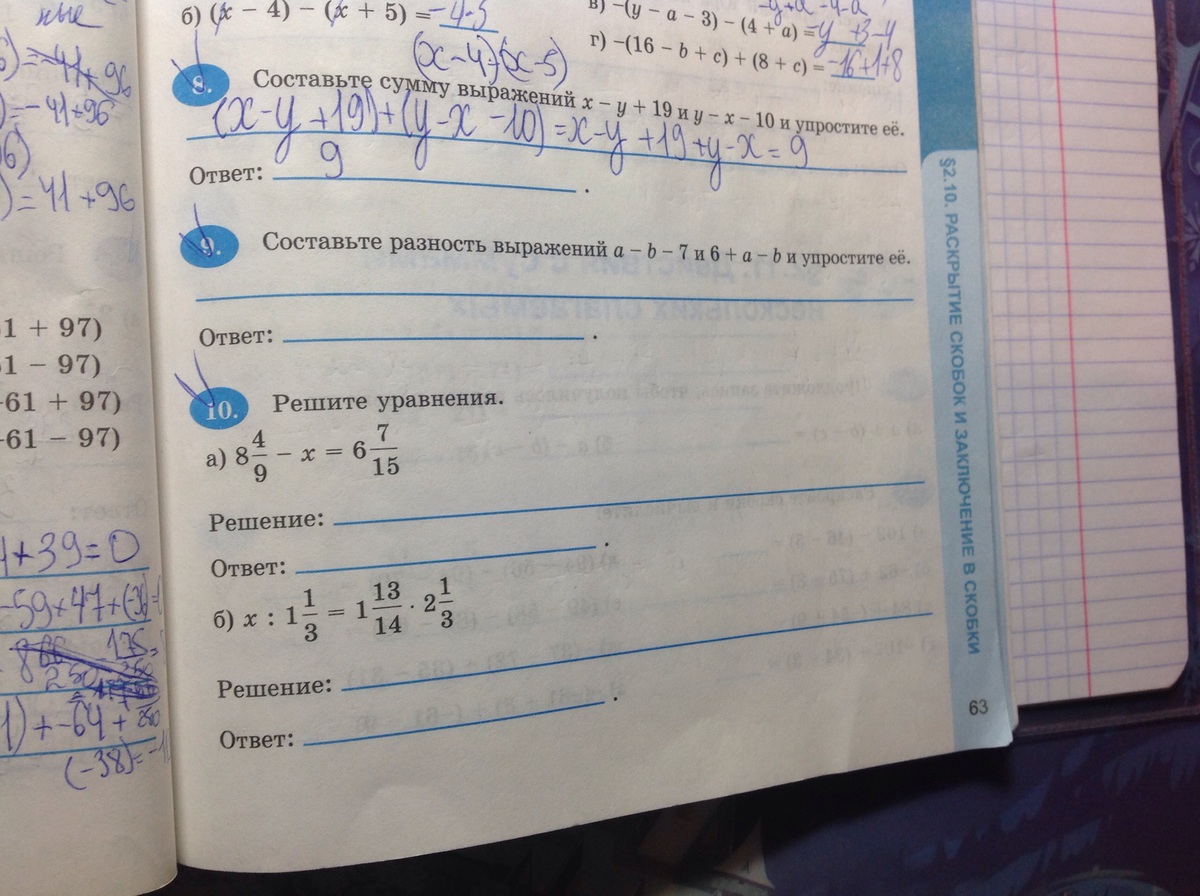 ные
б) (x − 4) − (x + 5) = −4−5
в) −(y − a − 3) − (4 + a) = y +3−4
г) −(16 − b + c) + (8 + c) = −16+1+8
(x−4)(x−5)
8. Составьте сумму выражений x − y + 19 и y − x − 10 и упростите её.
(x−y+19)+(y−x−10)=x−y+19+y−x=9
Ответ: 9.
9. Составьте разность выражений a − b − 7 и 6 + a − b и упростите её.
Ответ: .
10. Решите уравнения.
а) 8 4/9 − x = 6 7/15
Решение:
Ответ: .
б) x : 1 1/3 = 1 13/14 · 2 1/3
Решение:
Ответ: .
§2.10. РАСКРЫТИЕ СКОБОК И ЗАКЛЮЧЕНИЕ В СКОБКИ
63
)=−41+96
)=41+96
61 + 97)
61 − 97)
−61 + 97)
−61 − 97)
+39=0
−59+47+(−38)
1)+−64+
(−38)=